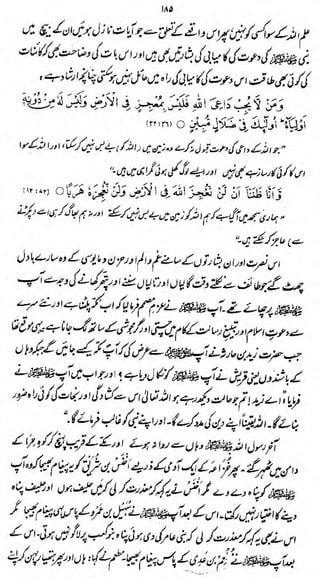 ۱۸۵
علم اللہ کے سوا کسی کو نہیں پھر اس واقعے کے تعلق سے جو آیات نازل ہوئیں ان کے بیچ میں
نبی ﷺ کی دعوت کی کامیابی کی بشارتیں بھی ہیں اور اس بات کی وضاحت بھی کہ کائنات
کی کوئی بھی طاقت اس دعوت کی کامیابی کی راہ میں حائل نہیں ہو سکتی چنانچہ ارشاد ہے ؀
وَمَنْ لَّا يُجِبْ دَاعِيَ اللّٰهِ فَلَيْسَ بِمُعْجِزٍ فِي الْاَرْضِ وَلَيْسَ لَهٗ مِنْ دُوْنِهٖٓ
اَوْلِيَآءُ ۭ اُولٰٓئِكَ فِيْ ضَلٰلٍ مُّبِيْنٍ (۳۲:۴۶)
”جو اللہ کے داعی کی دعوت قبول نہ کرے وہ زمین میں (اللہ کو) بے بس نہیں کر سکتا، اور اللہ کے سوا
اس کا کوئی کارساز ہے بھی نہیں اور ایسے لوگ کھلی ہوئی گمراہی میں ہیں۔“
وَّاَنَّا ظَنَنَّآ اَنْ لَّنْ نُّعْجِزَ اللّٰهَ فِي الْاَرْضِ وَلَنْ نُّعْجِزَهٗ هَرَبًا (۱۲:۷۲)
”ہماری سمجھ میں آگیا ہے کہ ہم اللہ کو زمین میں بے بس نہیں کر سکتے اور نہ ہم بھاگ کر ہی اسے (پکڑنے
سے) عاجز کر سکتے ہیں۔“
اس نصرت اور ان بشارتوں کے سامنے غم والم اور حزن و مایوسی کے وہ سارے بادل
چھٹ گئے جو طائف سے نکلتے وقت گالیاں اور تالیاں سننے اور پتھر کھانے کی وجہ سے آپ
ﷺ پر چھائے تھے۔ آپ ﷺ نے عزم مصمم فرمالیا کہ اب مکہ پلٹنا ہے اور نئے سرے
سے دعوتِ اسلام اور تبلیغِ رسالت کے کام میں چستی اور گرمجوشی کے ساتھ لگ جانا ہے یہی موقع تھا
جب حضرت زید بن حارثہ نے آپ ﷺ سے عرض کی کہ آپ مکہ کیسے جائیں گے جبکہ وہاں
کے باشندوں یعنی قریش نے آپ ﷺ کو نکال دیا ہے؟ اور جواب میں آپ ﷺ نے
فرمایا اے زید! تم جو حالت دیکھ رہے ہو اللہ تعالیٰ اس سے کشادگی اور نجات کی کوئی راہ ضرور
بنائے گا۔ اللہ یقیناً اپنے دین کی مدد کرے گا۔ اور اپنے نبی کو غالب فرمائے گا۔“
آخر رسول اللہ ﷺ وہاں سے روانہ ہوئے اور مکے کے قریب پہنچ کر کوہِ حرا کے
دامن میں ٹھہر گئے۔ پھر خزاعہ کے ایک آدمی کے ذریعے اخنس بن شریق کو یہ پیغام بھیجا کہ وہ آپ
ﷺ کو پناہ دے دے مگر اخنس نے یہ کہہ کر معذرت کر لی کہ میں حلیف ہوں اور حلیف پناہ
دینے کا اختیار نہیں رکھتا۔ اس کے بعد آپ ﷺ نے سہیل بن عمرو کے پاس یہی پیغام بھیجا مگر
اس نے بھی یہ کہہ کر معذرت کر لی کہ بنی عامر کی دی ہوئی پناہ بنو کعب پر لاگو نہیں ہوتی۔ اس کے
بعد آپ ﷺ نے مطعم بن عدی کے پاس پیغام بھیجا۔ مطعم نے کہا: ہاں اور پھر ہتھیار پہن کر اپنے